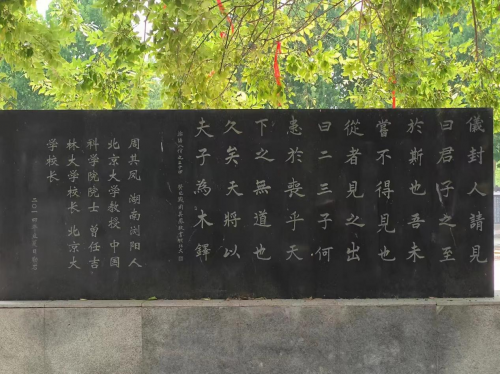 儀封人請見
曰君子之至
於斯也吾未
嘗不得見也
從者見之出
曰二三子何
患於喪乎天
下之無道也
久矣天將以
夫子為木鐸
周其凤 湖南浏阳人
北京大学教授 中国
科学院院士 曾任吉
林大学校长 北京大
学校长